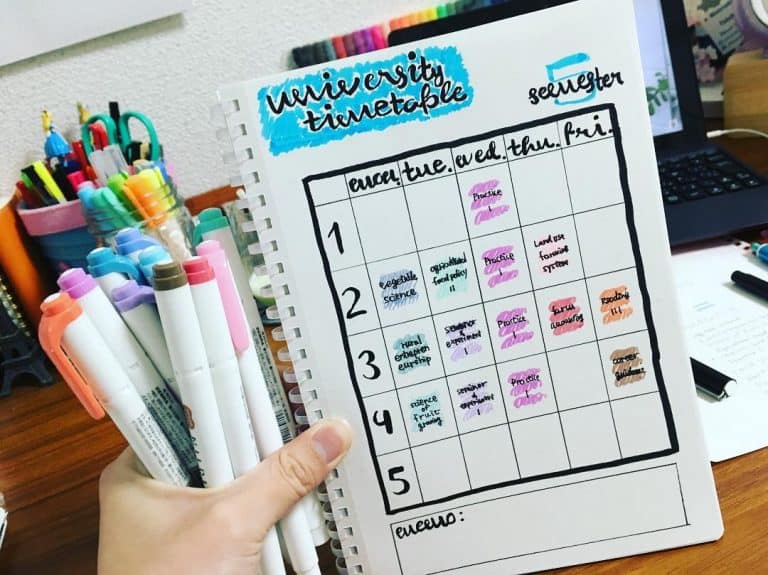 university
timetable
5
semester
mon. tue. wed. thu. fri.
1
Practice
1
2
vegetable
science
agricultural
food policy
II
Practice
1
Land use
farming
system
3
rural
entrepren
eurship
seminar
& experiment
1
Practice
1
farm
accounting
Reading
III
4
science
of
fruit
growing
seminar
& experiment
1
Practice
1
career
guidance
5